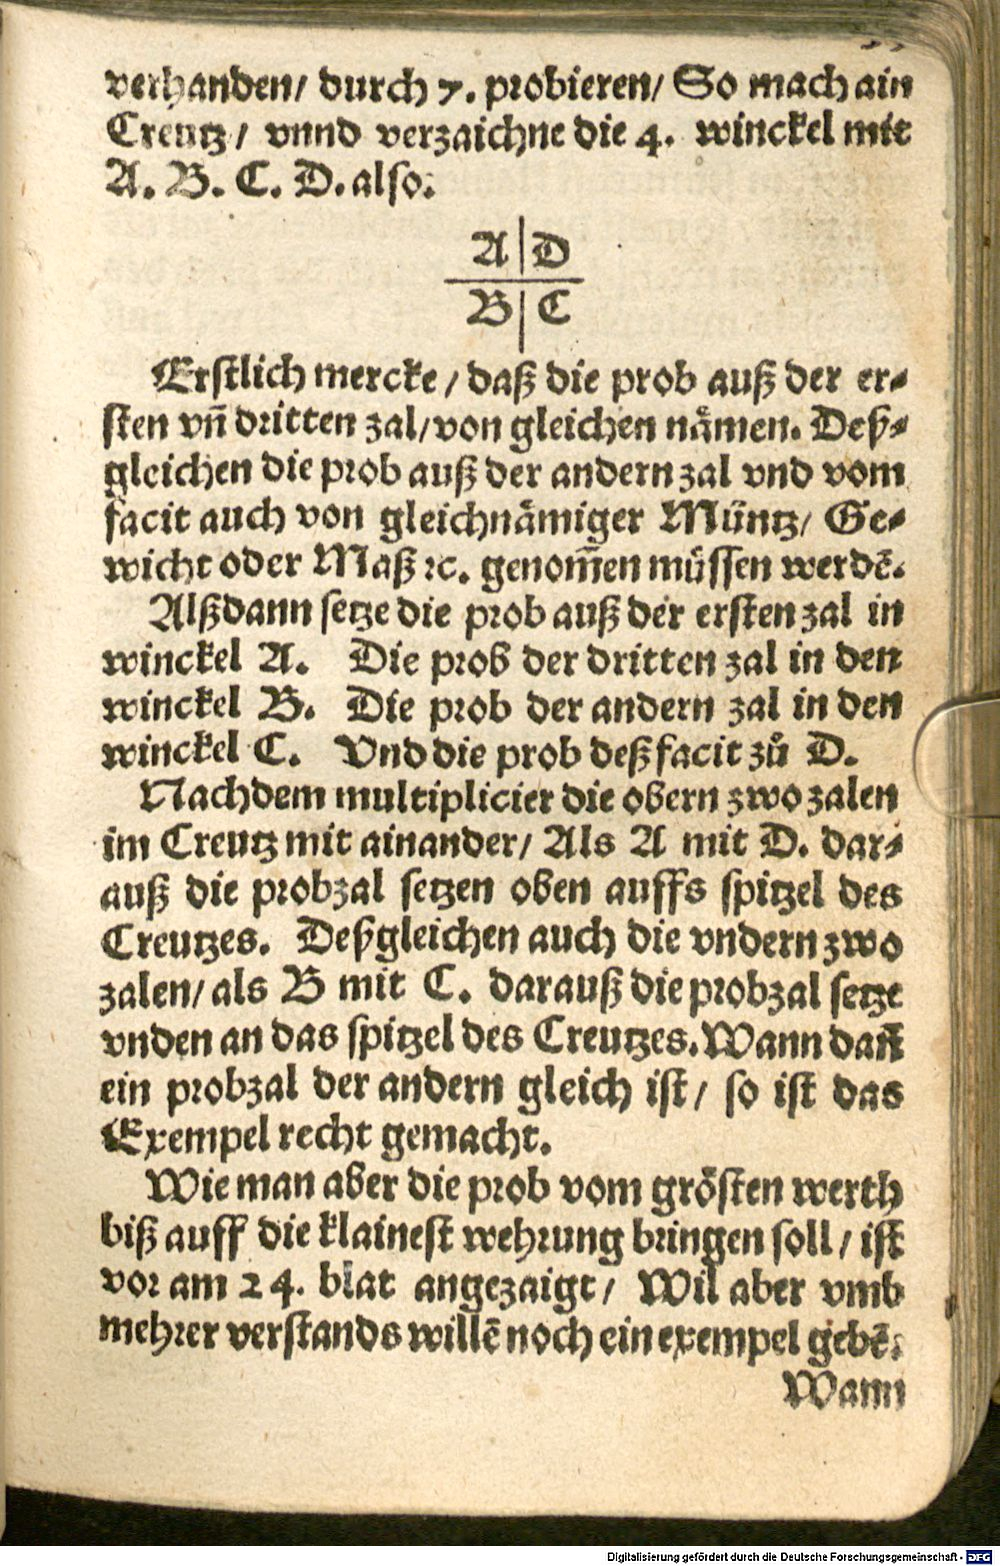 verhanden/ durch 7. probieren/ So mach ain
Creutz/ vnnd verzaichne die 4. winckel mit
A. B. C. D. also:
A D
B C
Erstlich mercke/ daß die prob auß der er⸗
sten vñ dritten zal/ von gleichen nåmen. Deß⸗
gleichen die prob auß der andern zal vnd vom
facit auch von gleichnåmiger Müntz/ Ge⸗
wicht oder Maß ꝛc. genom̃en müssen werdẽ.
Alßdann setze die prob auß der ersten zal in
winckel A. Die prob der dritten zal in den
winckel B. Die prob der andern zal in den
winckel C. Vnd die prob deß facit zů D.
Nachdem multiplicier die obern zwo zalen
im Creutz mit ainander/ Als A mit D. dar⸗
auß die probzal setzen oben auffs spitzel des
Creutzes. Deßgleichen auch die vndern zwo
zalen/ als B mit C. darauß die probzal setze
vnden an das spitzel des Creutzes. Wann dañ
ein probzal der andern gleich ist/ so ist das
Exempel recht gemacht.
Wie man aber die prob vom grösten werth
biß auff die klainest wehrung bringen soll/ ist
vor am 24. blat angezaigt/ Wil aber vmb
mehrer verstands willẽ noch ein exempel gebẽ.
Wann
Digitalisierung gefördert durch die Deutsche Forschungsgemeinschaft - DFG